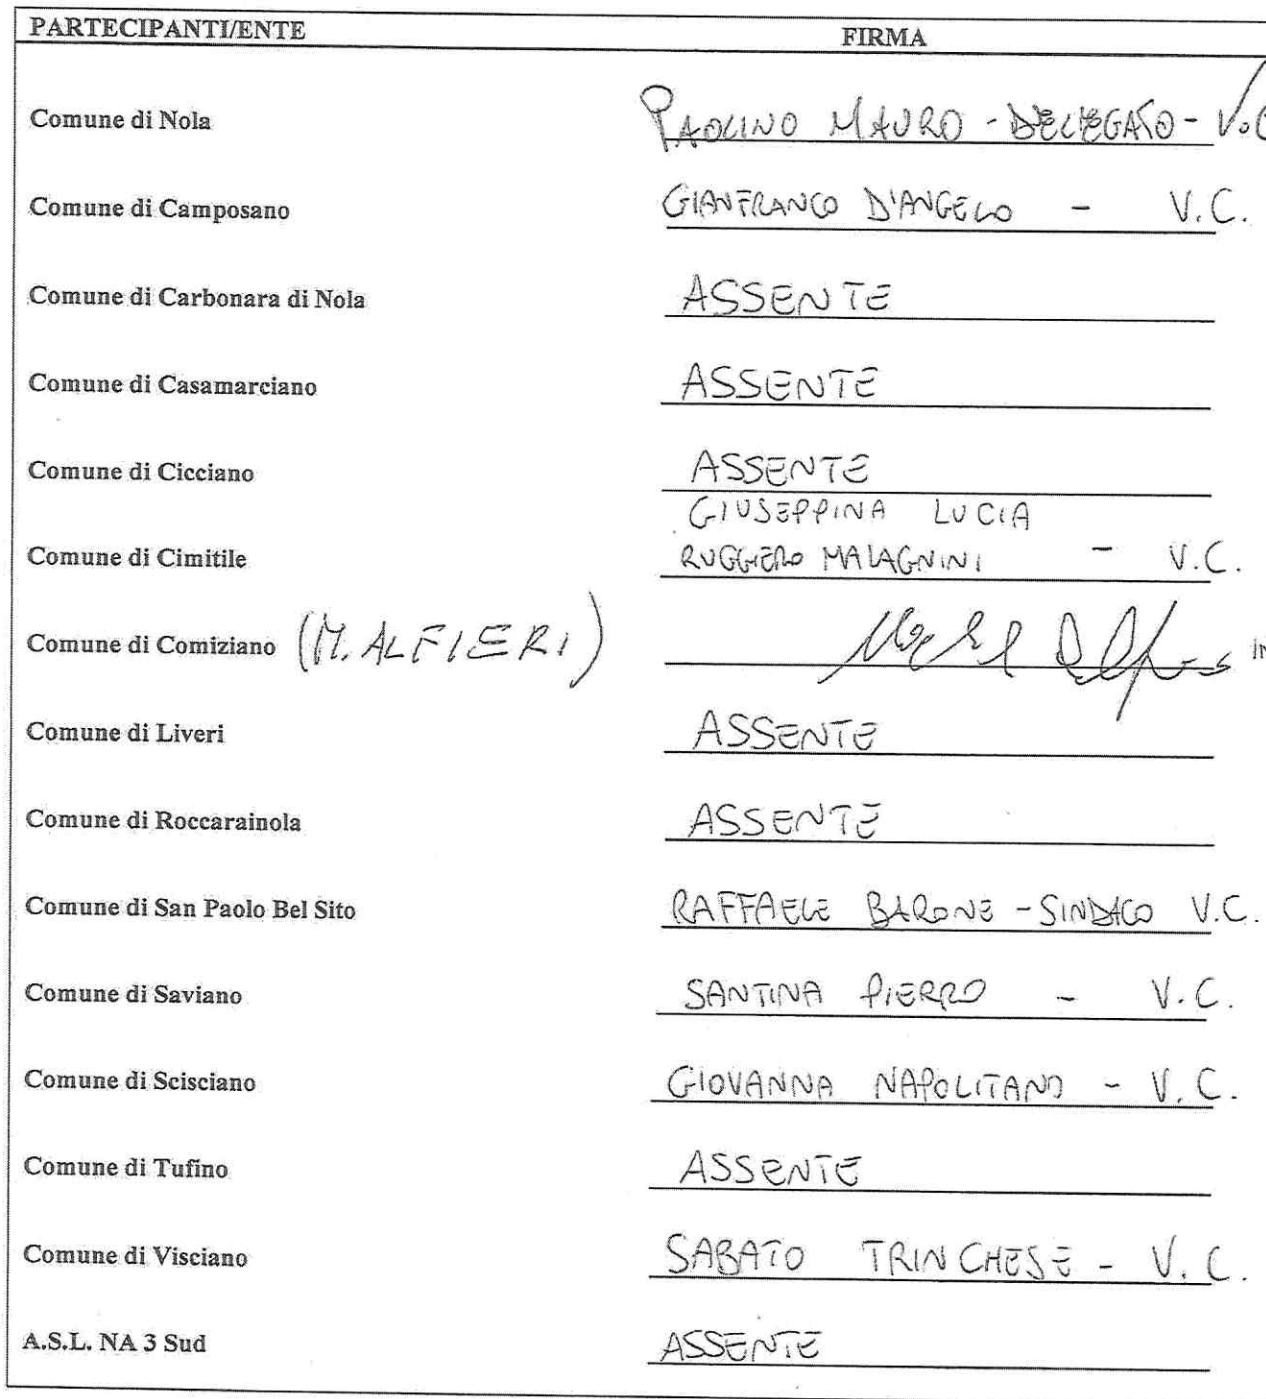 PARTECIPANTI/ENTE FIRMA
Comune di Nola PAOLINO MAURO - DELEGATO - V.C
Comune di Camposano GIANFRANCO D'ANGELO - V.C.
Comune di Carbonara di Nola ASSENTE
Comune di Casamarciano ASSENTE
Comune di Cicciano ASSENTE
GIUSEPPINA LUCIA
Comune di Cimitile RUGGIERO MALAGNINI - V.C.
Comune di Comiziano (M. ALFIERI)
Comune di Liveri ASSENTE
Comune di Roccarainola ASSENTE
Comune di San Paolo Bel Sito RAFFAELE BARONE - SINDACO V.C.
Comune di Saviano SANTINA PIERRO - V.C.
Comune di Scisciano GIOVANNA NAPOLITANO - V.C.
Comune di Tufino ASSENTE
Comune di Visciano SABATO TRINCHESE - V.C.
A.S.L. NA 3 Sud ASSENTE